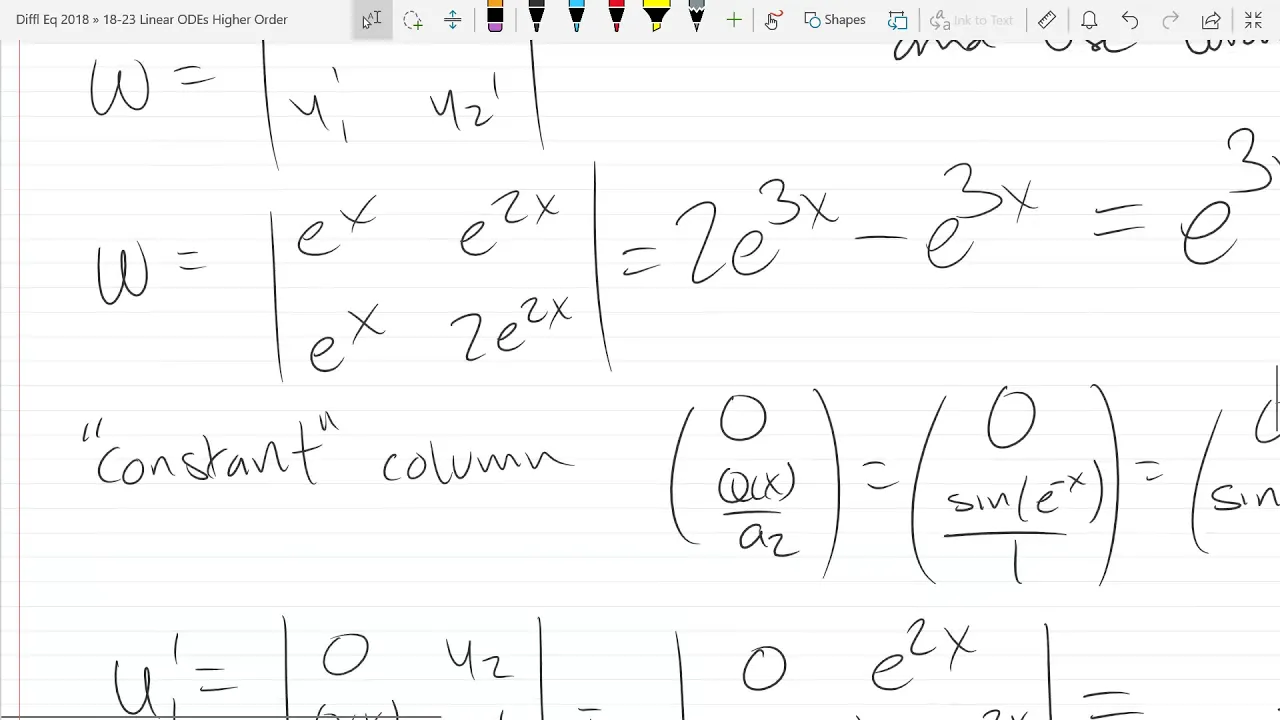 Diffl Eq 2018 » 18-23 Linear ODEs Higher Order
Draw
Shapes
Ink to Text
and use
W = | y₁' y₂' |
W = | e^x e^{2x} | = 2e^{3x} − e^{3x} = e^{3x}
| e^x 2e^{2x} |
"constant" column ( 0 ) = ( 0 ) = ( 0
( Q(x)/a₂ ) ( sin(e^{-x})/1 ) ( sin
u₁' = | 0 y₂ | = | 0 e^{2x} | =